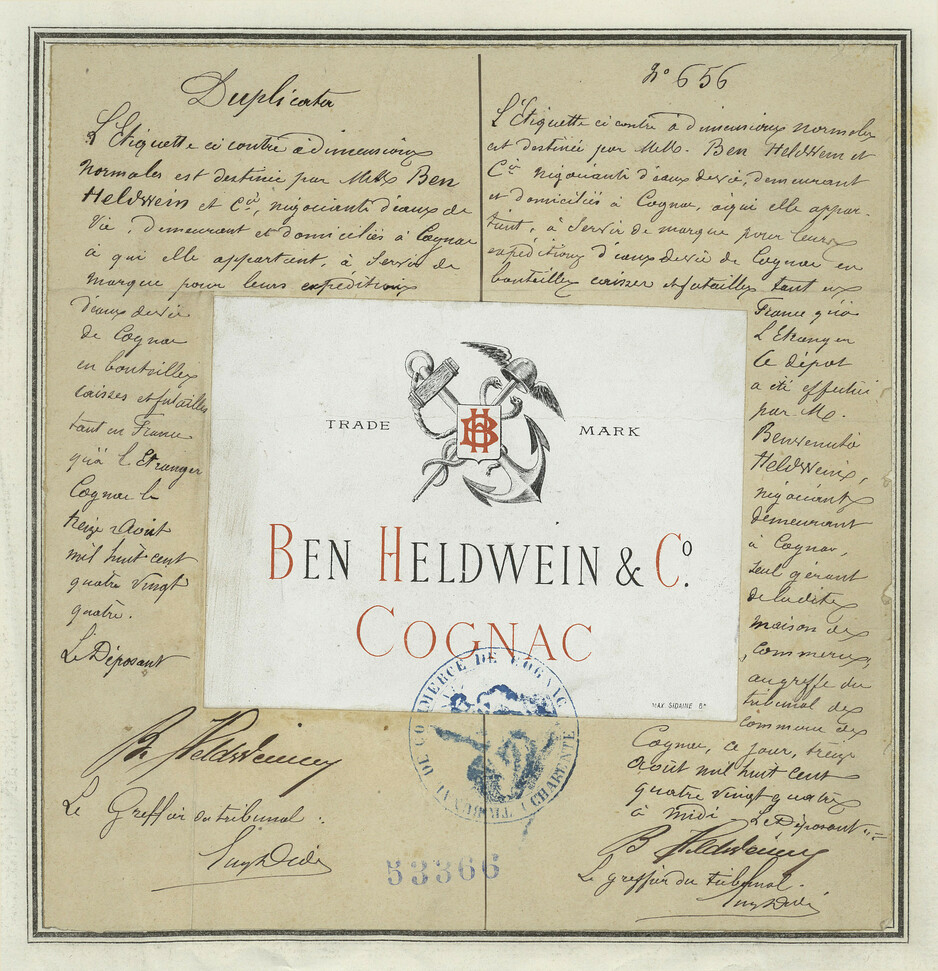 Duplicata
L'Etiquette ci contre à dimensions
normales est destinée par MM. Ben
Heldwein et Cie, négociants d'eaux de
Vie, demeurant et domiciliés à Cognac
à qui elle appartient, à Servir de
marque pour leurs expéditions
d'eaux de vie
de Cognac
en bouteilles
caisses et futailles
tant en France
qu'à l'Etranger
Cognac le
treize Août
mil huit cent
quatre vingt
quatre.
Le Déposant
B. Heldwein
Le Greffier du tribunal.
No 656
L'Etiquette ci contre à dimensions normales
est destinée par MM. Ben Heldwein et
Cie négociants d'eaux de vie, demeurant
et domiciliés à Cognac, à qui elle appar-
tient, à Servir de marque pour leurs
expéditions d'eaux de vie de Cognac en
bouteilles caisses et futailles tant en
France qu'à
L'Etranger
Ce dépôt
a été effectué
par M.
Benvenuto
Heldwein,
négociant
demeurant
à Cognac,
seul gérant
de la dite
maison de
Commerce,
au greffe du
tribunal de
Commerce de
Cognac, ce jour, treize
Août mil huit cent
quatre vingt quatre
à midi Le Déposant
B. Heldwein
Le greffier du tribunal.
TRADE MARK
HB
BEN HELDWEIN & Co.
COGNAC
MAX. SIDAINE Bx
TRIBUNAL DE COMMERCE DE COGNAC (CHARENTE)
53366